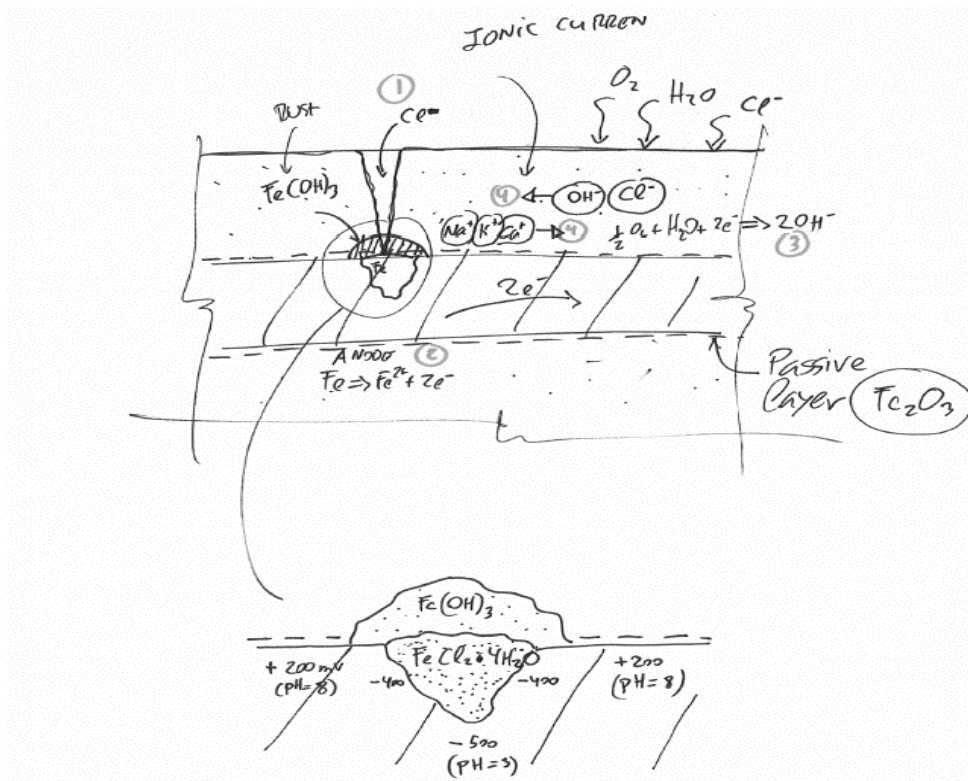 IONIC CURREN
O₂
H₂O
Cl⁻
①
RUST
Cl⁻
Fe(OH)₃
④ OH⁻ Cl⁻
Na⁺ K⁺ Ca⁺ ④
½O₂ + H₂O + 2e⁻ ⇒ 2OH⁻
③
Fe
2e⁻
ANODO ②
Fe ⇒ Fe²⁺ + 2e⁻
Passive
Layer Fe₂O₃
Fe(OH)₃
FeCl₂•4H₂O
+200 mV
(pH=8)
-400
-400
+200
(pH=8)
-500
(pH=3)